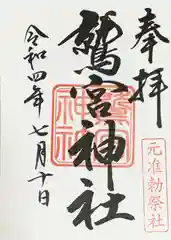 奉拝
鷲宮神社
元准勅祭社
令和四年七月十日